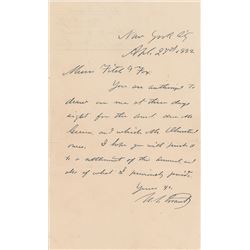 New York City
Apl. 27th 1882
Messrs Fitch & Fox.
You are authorized to
draw on me at three days
sight for the amt due the
and which the
ones. I hope you will proceed
to a settlement of the
also of what I previously
Yours &c.
U. S. Grant